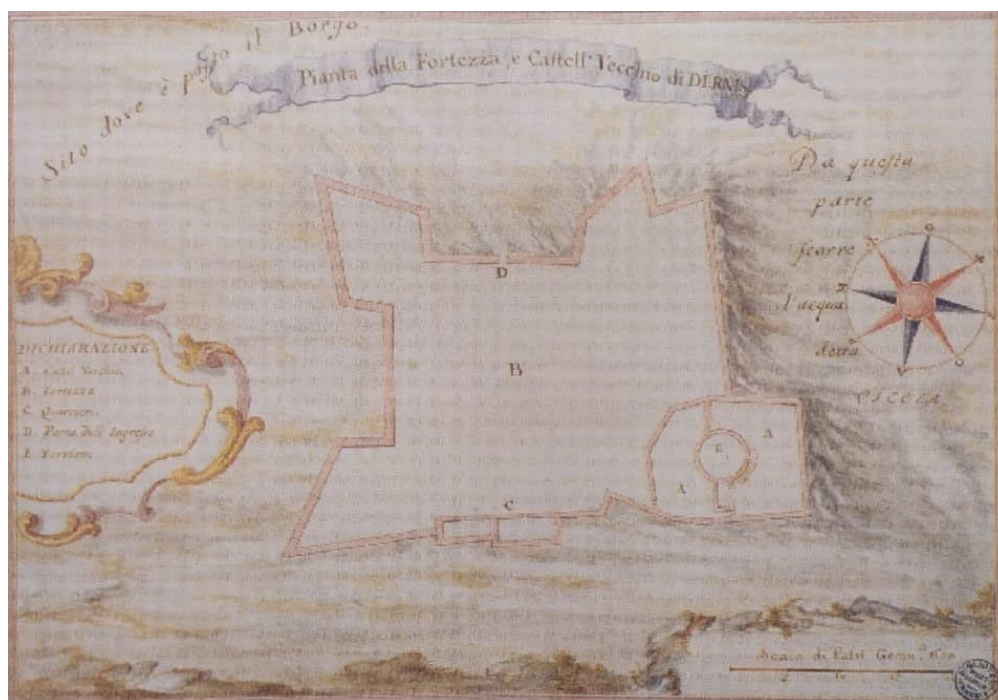 Sito dove è posto il Borgo.
Pianta della Fortezza, e Castell Vecchio di DERNIS
Da questa
parte
scorre
l'acqua
detta
CICOLA
DICHIARAZIONE
A Castel Vecchio
B. Fortezza
C Quartieri
D Porta dell Ingresso
E Torrion
D
B
A
E
A
C
Scala di Passi Geom.